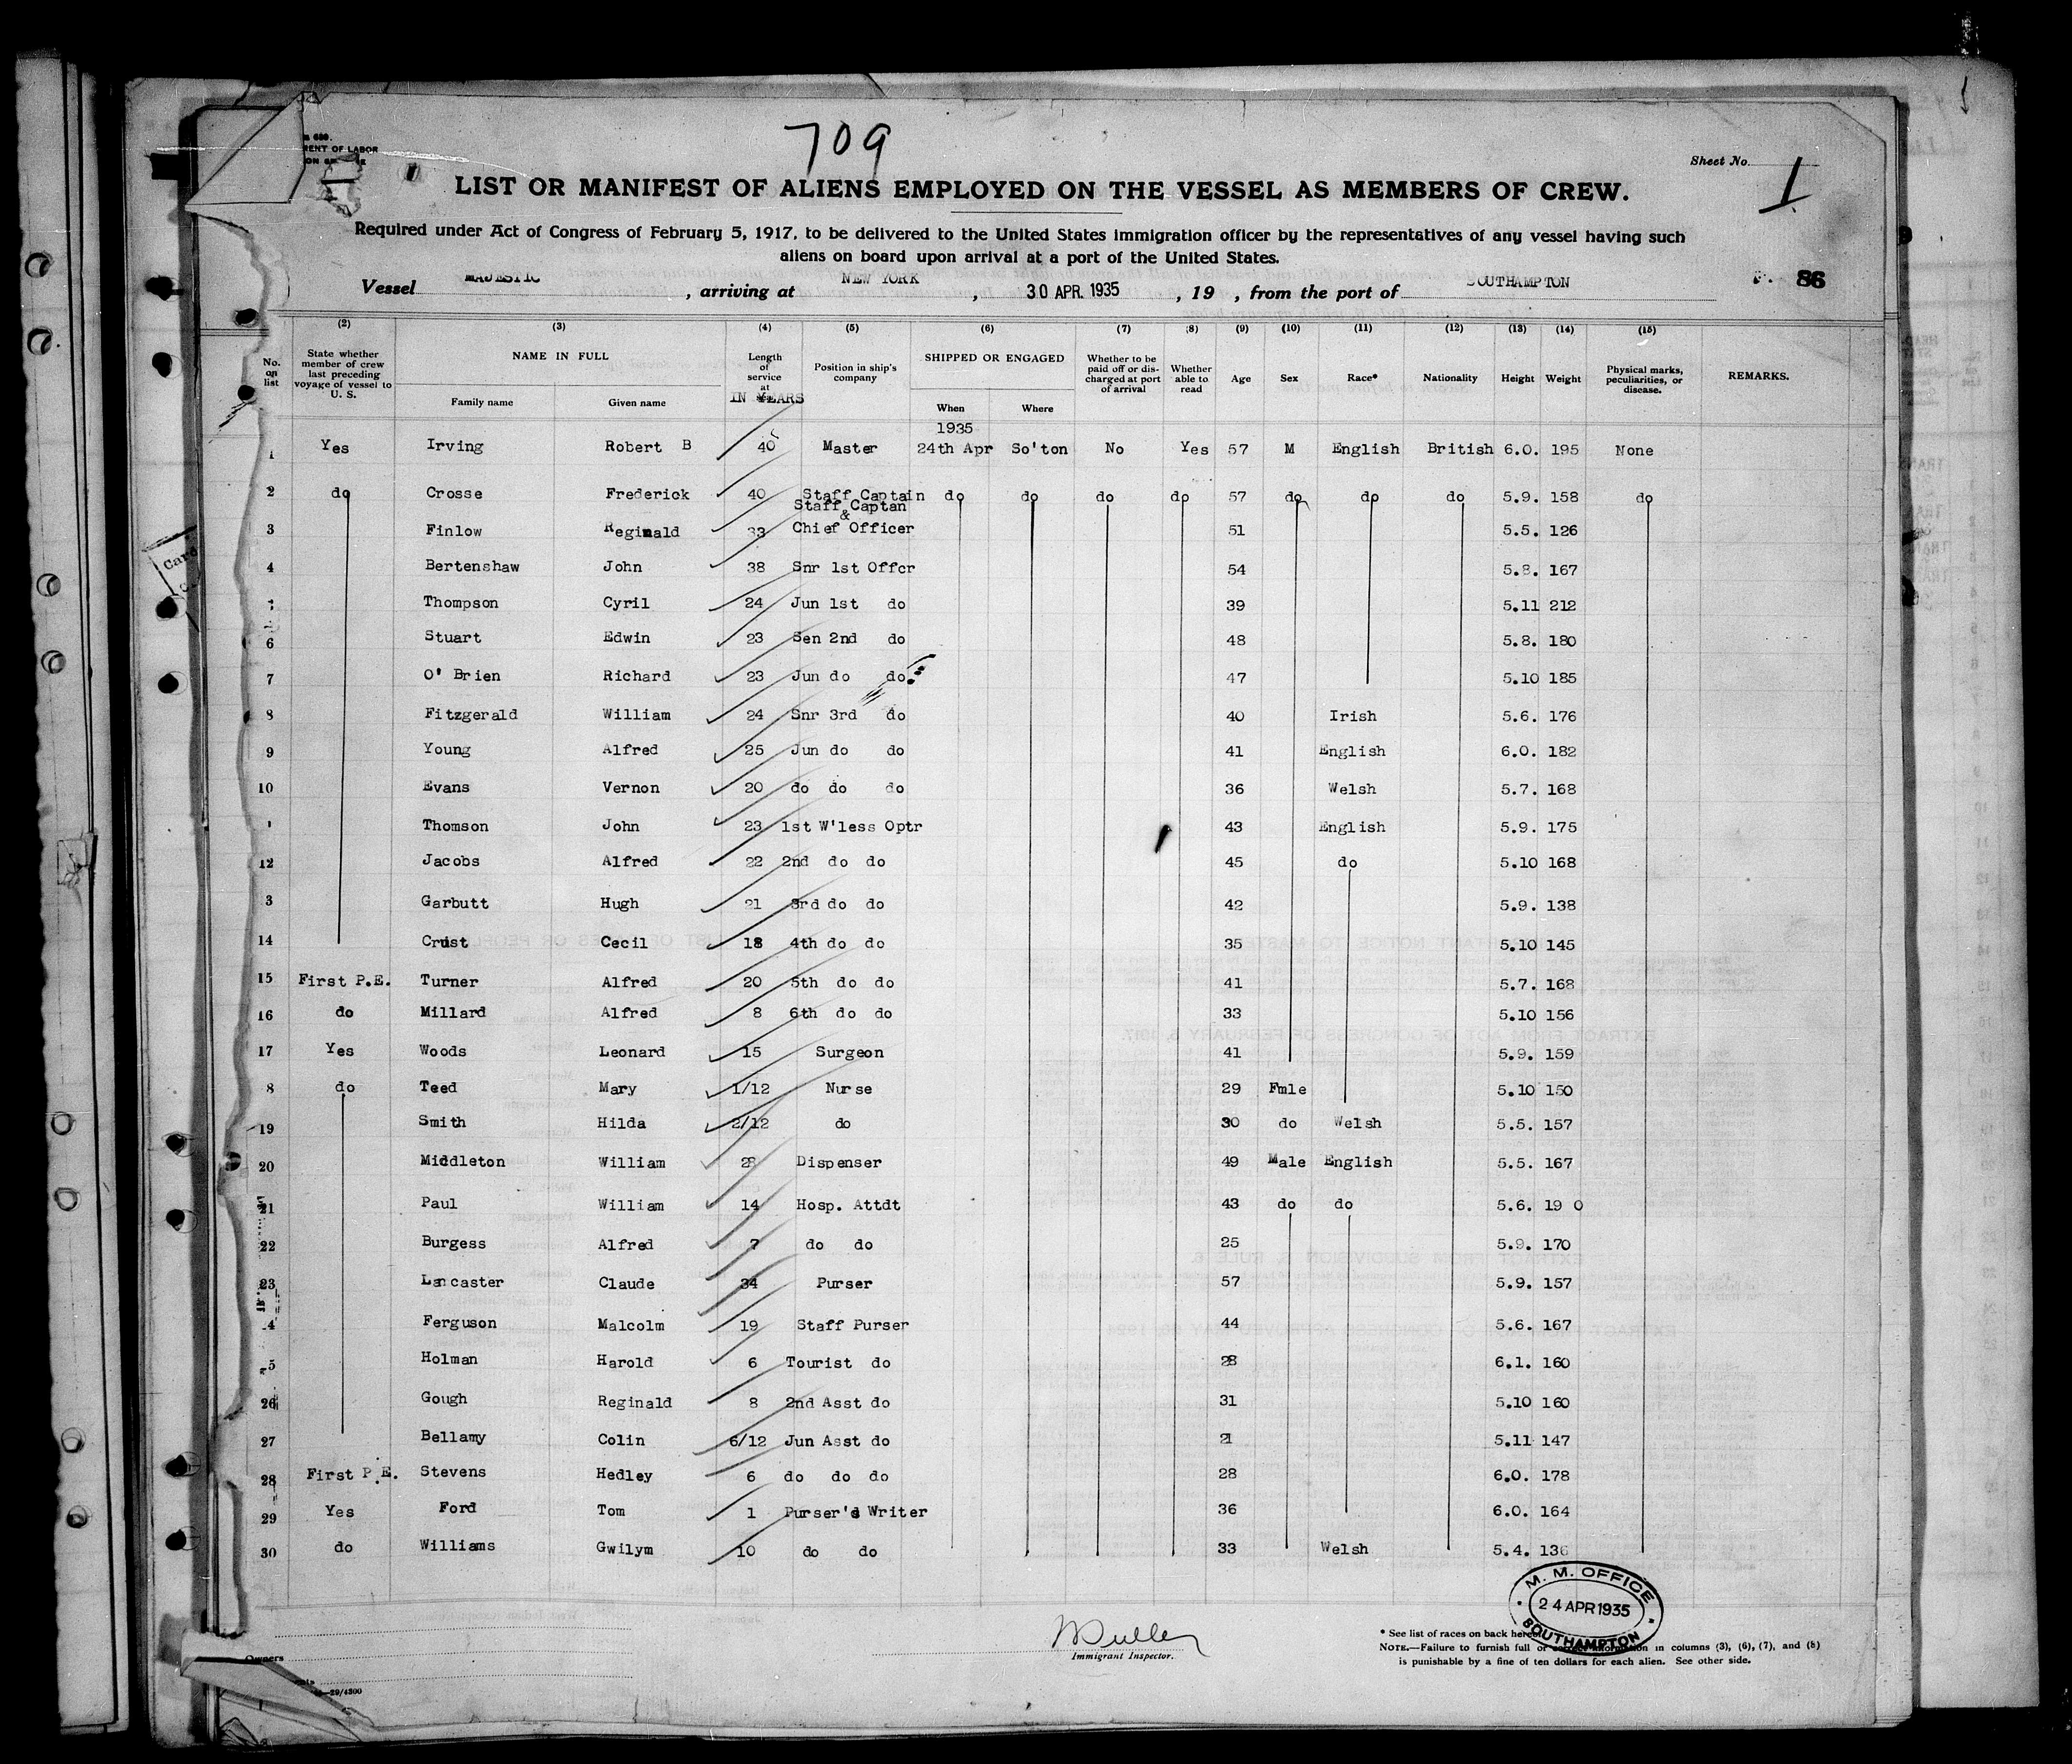 709
RENT OF LABOR
Sheet No. 1
LIST OR MANIFEST OF ALIENS EMPLOYED ON THE VESSEL AS MEMBERS OF CREW.
Required under Act of Congress of February 5, 1917, to be delivered to the United States immigration officer by the representatives of any vessel having such
aliens on board upon arrival at a port of the United States.
Vessel MAJESTIC, arriving at NEW YORK, 30 APR. 1935, 19 , from the port of SOUTHAMPTON 86
(2) (3) (4) (5) (6) (7) (8) (9) (10) (11) (12) (13) (14) (15)
No. on list State whether member of crew last preceding voyage of vessel to U. S. NAME IN FULL Family name Given name Length of service at IN YEARS Position in ship's company SHIPPED OR ENGAGED When Where Whether to be paid off or discharged at port of arrival Whether able to read Age Sex Race* Nationality Height Weight Physical marks, peculiarities, or disease. REMARKS.
1935
1 Yes Irving Robert B 40 Master 24th Apr So'ton No Yes 57 M English British 6.0. 195 None
2 do Crosse Frederick 40 Staff Captain do do do do 57 do do do 5.9. 158 do
Staff Captan
&
3 Finlow Reginald 33 Chief Officer 51 5.5. 126
4 Bertenshaw John 38 Snr 1st Offcr 54 5.8. 167
Thompson Cyril 24 Jun 1st do 39 5.11 212
6 Stuart Edwin 23 Sen 2nd do 48 5.8. 180
7 O' Brien Richard 23 Jun do do 47 5.10 185
8 Fitzgerald William 24 Snr 3rd do 40 Irish 5.6. 176
9 Young Alfred 25 Jun do do 41 English 6.0. 182
10 Evans Vernon 20 do do do 36 Welsh 5.7. 168
Thomson John 23 1st W'less Optr 43 English 5.9. 175
12 Jacobs Alfred 22 2nd do do 45 do 5.10 168
3 Garbutt Hugh 21 3rd do do 42 5.9. 138
14 Crust Cecil 18 4th do do 35 5.10 145
15 First P.E. Turner Alfred 20 5th do do 41 5.7. 168
16 do Millard Alfred 8 6th do do 33 5.10 156
17 Yes Woods Leonard 15 Surgeon 41 5.9. 159
8 do Teed Mary 1/12 Nurse 29 Fmle 5.10 150
19 Smith Hilda 2/12 do 30 do Welsh 5.5. 157
20 Middleton William 28 Dispenser 49 Male English 5.5. 167
21 Paul William 14 Hosp. Attdt 43 do do 5.6. 19 0
22 Burgess Alfred 7 do do 25 5.9. 170
23 Lancaster Claude 34 Purser 57 5.9. 157
4 Ferguson Malcolm 19 Staff Purser 44 5.6. 167
5 Holman Harold 6 Tourist do 28 6.1. 160
26 Gough Reginald 8 2nd Asst do 31 5.10 160
27 Bellamy Colin 6/12 Jun Asst do 21 5.11 147
28 First P.E. Stevens Hedley 6 do do do 28 6.0. 178
29 Yes Ford Tom 1 Purser's Writer 36 6.0. 164
30 do Williams Gwilym 10 do do 33 Welsh 5.4. 136
M. M. OFFICE
24 APR 1935
SOUTHAMPTON
Immigrant Inspector.
* See list of races on back hereof
NOTE.—Failure to furnish full or correct information in columns (3), (6), (7), and (8)
is punishable by a fine of ten dollars for each alien. See other side.
Owners